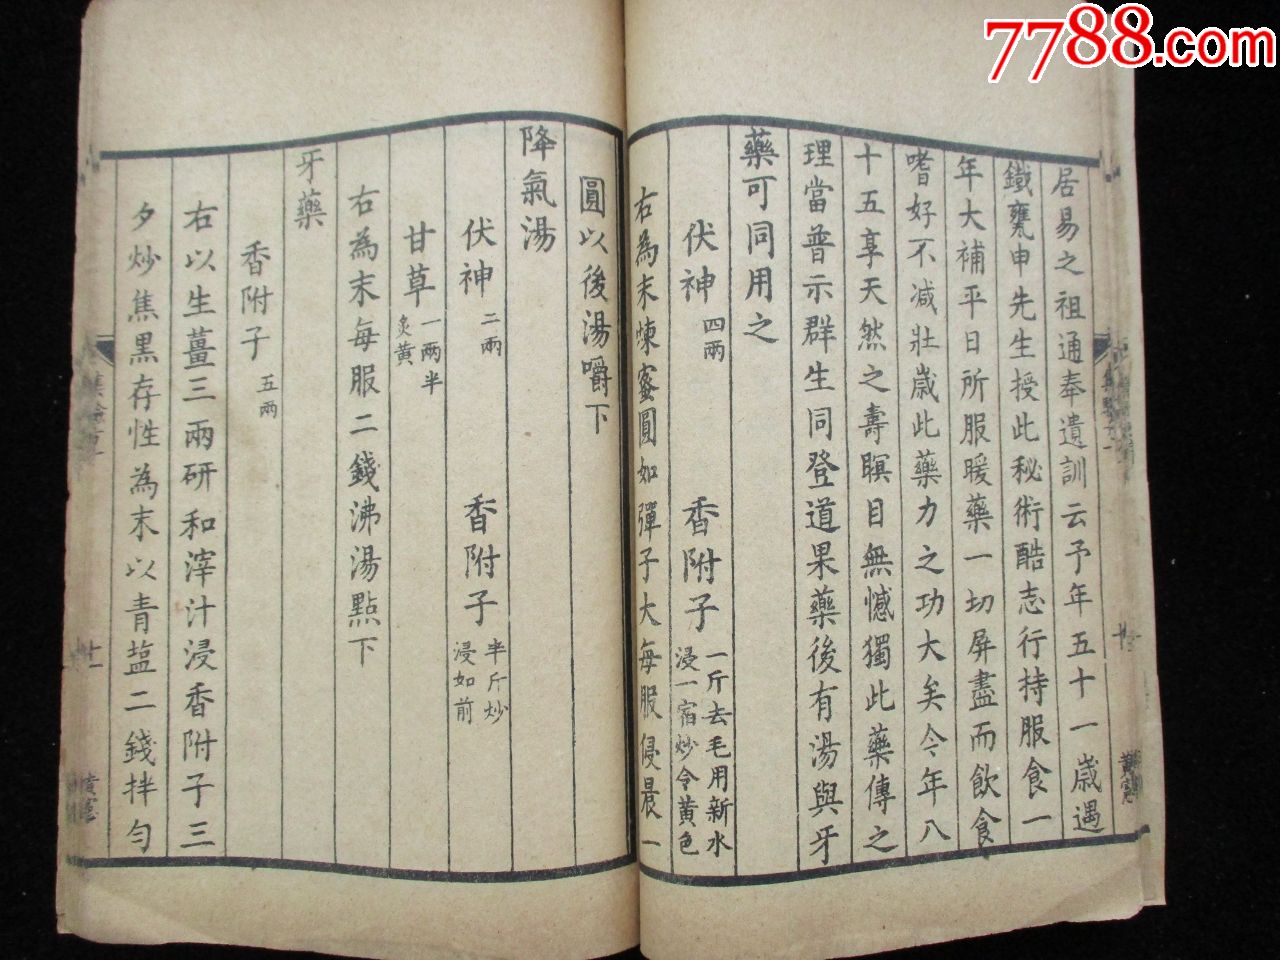 7788.com
居易之祖通奉遺訓云予年五十一歲遇
鐵甕申先生授此秘術酷志行持服食一
年大補平日所服暖藥一切屏盡而飲食
嗜好不减壯歲此藥力之功大矣今年八
十五享天然之壽瞑目無憾獨此藥傳之
理當普示群生同登道果藥後有湯與牙
藥可同用之
伏神 四兩 香附子 一斤去毛用新水浸一宿炒令黃色
右為末煉蜜圓如彈子大每服侵晨一
圓以後湯嚼下
降氣湯
伏神 二兩 香附子 半斤炒浸如前
甘草 一兩半炙黄
右為末每服二錢沸湯點下
牙藥
香附子 五兩
右以生薑三兩研和滓汁浸香附子三
夕炒焦黑存性為末以青塩二錢拌勻
廿一